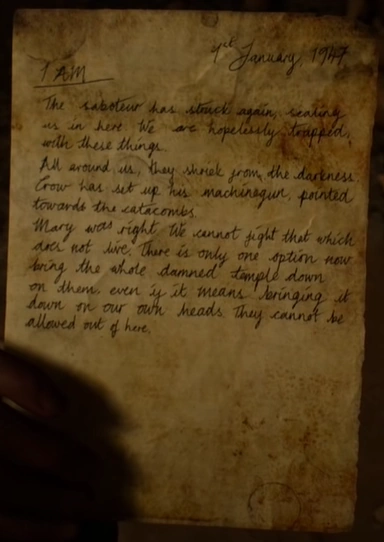 1st January, 1947
1 AM
The saboteur has struck again, sealing
us in here. We are hopelessly trapped,
with these things.
All around us, they shriek from the darkness.
Crow has set up his machinegun, pointed
towards the catacombs.
Mary was right. We cannot fight that which
does not live. There is only one option now
bring the whole damned temple down
on them, even if it means bringing it
down on our own heads. They cannot be
allowed out of here.